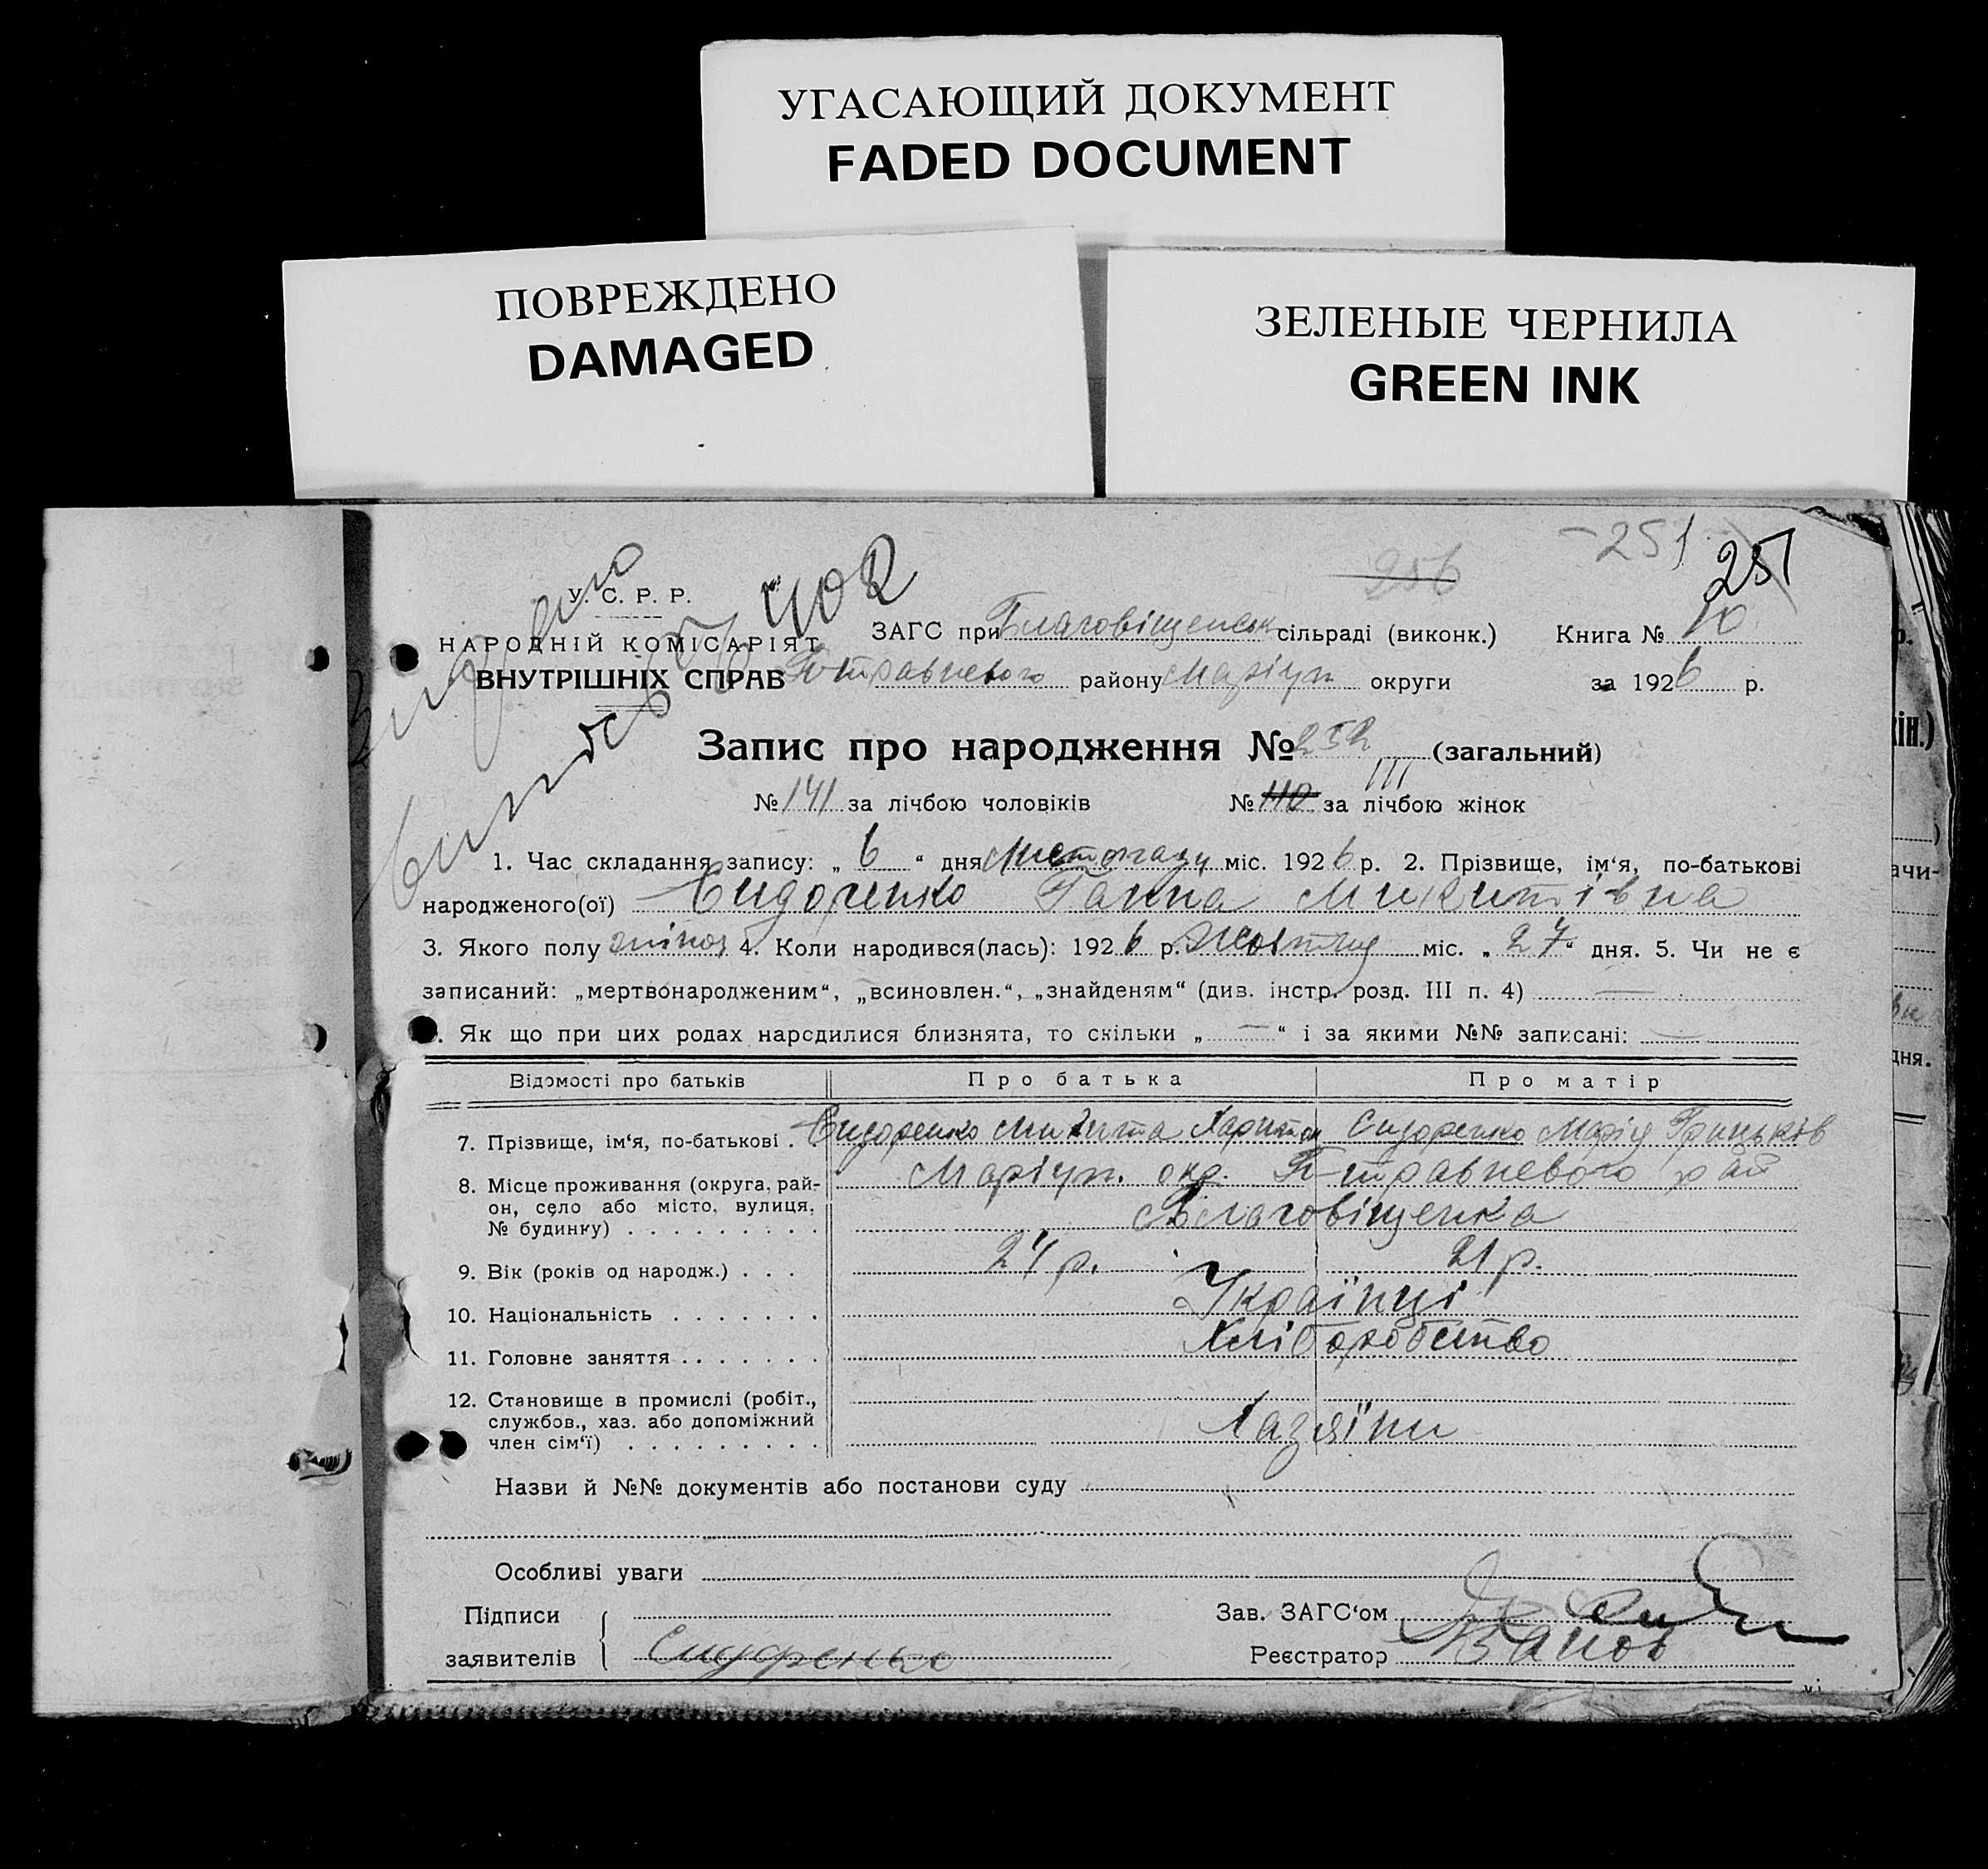 УГАСАЮЩИЙ ДОКУМЕНТ
FADED DOCUMENT
ПОВРЕЖДЕНО
DAMAGED
ЗЕЛЕНЫЕ ЧЕРНИЛА
GREEN INK
251
256
251
У. С. Р. Р.
НАРОДНІЙ КОМІСАРІЯТ
ВНУТРІШНІХ СПРАВ
Видано
402
ЗАГС при Благовіщенськ сільраді (виконк.) Книга № 10
району Маріуп округи за 1926 р.
Запис про народження № 252 (загальний)
№ 141 за лічбою чоловіків № 110 111 за лічбою жінок
1. Час складання запису: „ 6 “ дня Листопаду міс. 1926 р. 2. Прізвище, ім‘я, по-батькові
народженого(ої) Сидоренко Ганна Микитівна
3. Якого полу жіноч 4. Коли народився(лась): 1926 р. Жовтня міс. „ 27 “ дня. 5. Чи не є
записаний: „мертвонародженим“, „всиновлен.“, „знайденям“ (див. інстр. розд. III п. 4) —
. Як що при цих родах народилися близнята, то скільки „ — “ і за якими №№ записані: —
Відомості про батьків Про батька Про матір
7. Прізвище, ім‘я, по-батькові . Сидоренко Микита Харитон Сидоренко Марія Грицьків
8. Місце проживання (округа, рай- Маріуп. окр. рай
он, село або місто, вулиця, Благовіщенка
№ будинку) . . . . . . . . .
9. Вік (років од народж.) . . . 24 р. 21 р.
10. Національність . . . . . . . Українці
11. Головне заняття . . . . . . . Хліборобство
12. Становище в промислі (робіт.,
службов., хаз. або допоміжний
член сім‘ї) . . . . . . . . . Хазяїни
Назви й №№ документів або постанови суду
Особливі уваги
Підписи
заявителів Сидоренко
Зав. ЗАГС‘ом
Реєстратор